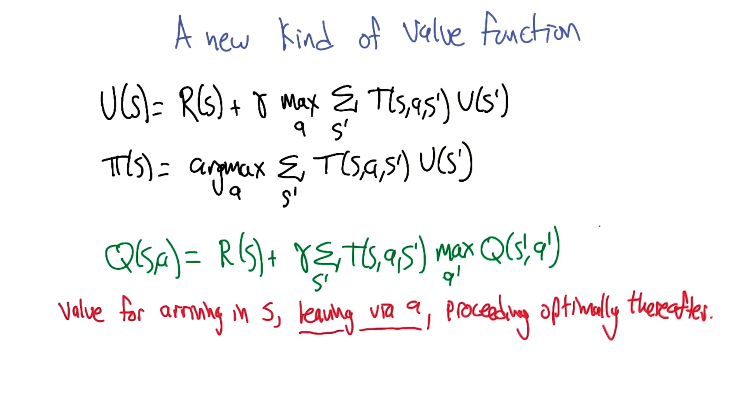 A new kind of value function
U(s) = R(s) + γ max_a Σ_s' T(s,a,s') U(s')
π(s) = argmax_a Σ_s' T(s,a,s') U(s')
Q(s,a) = R(s) + γ Σ_s' T(s,a,s') max_a' Q(s',a')
value for arriving in s, leaving via a, proceeding optimally thereafter.